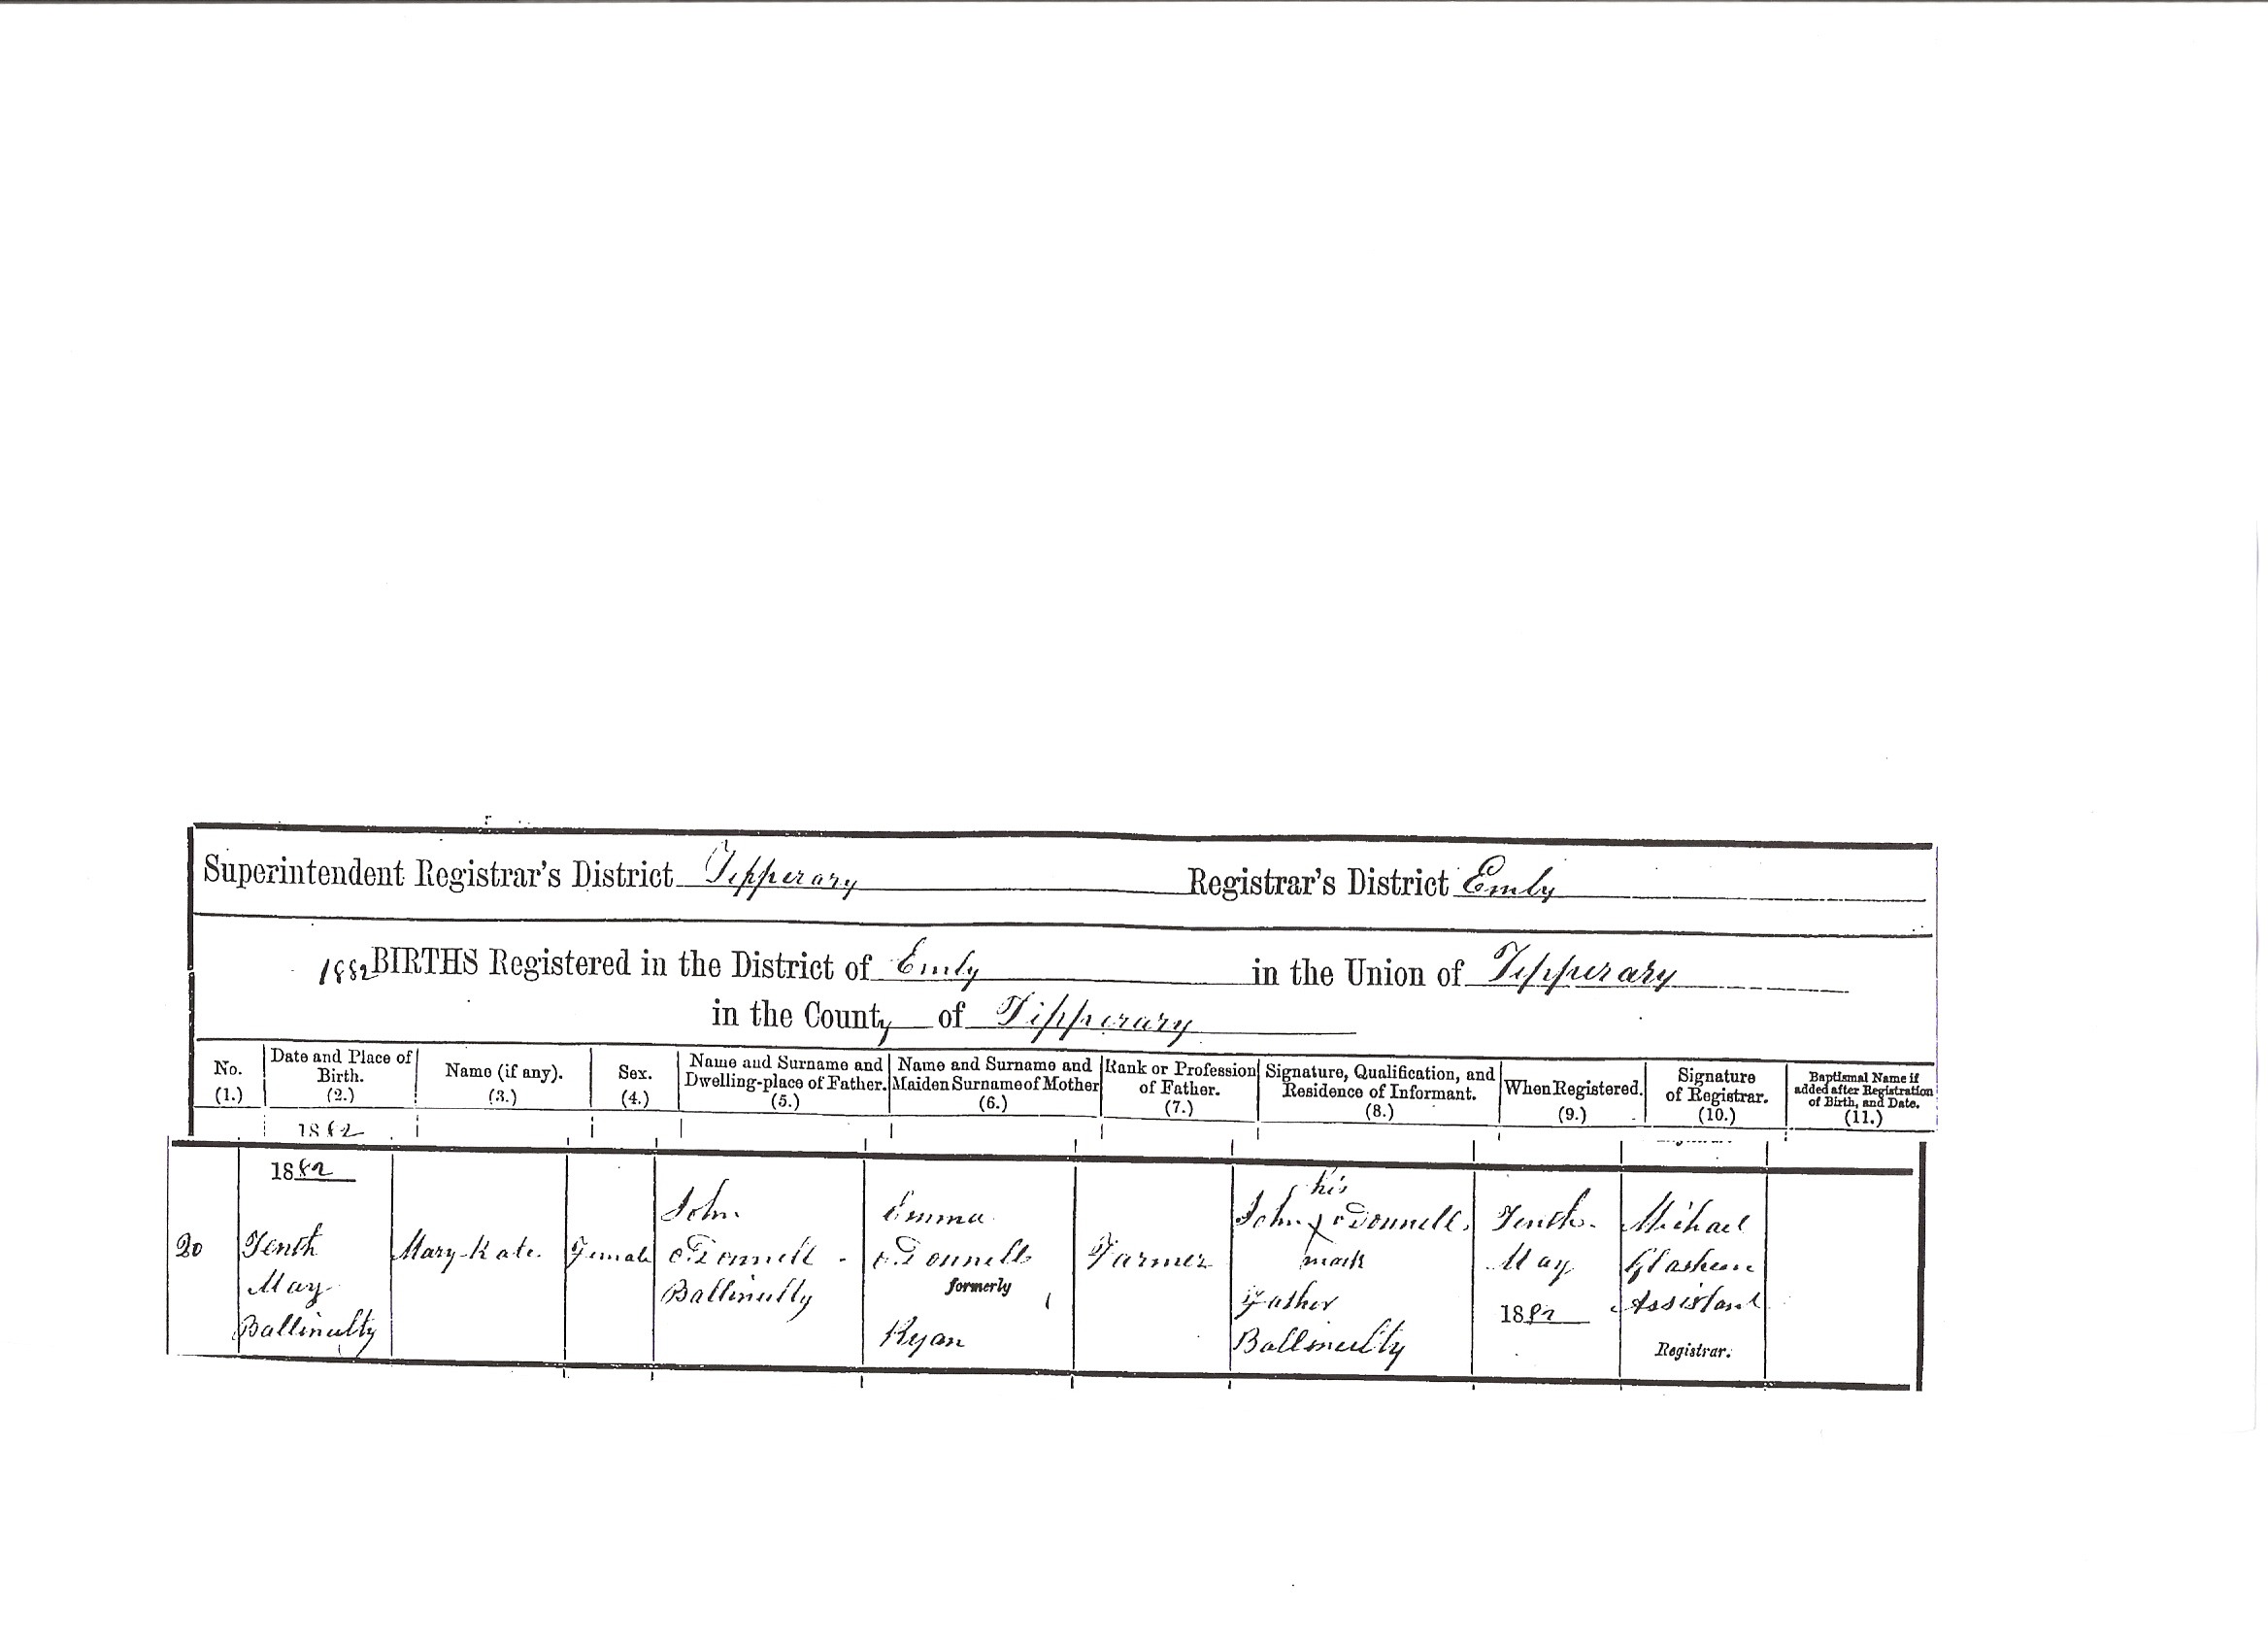 Superintendent Registrar's District Tipperary Registrar's District Emly
1882 BIRTHS Registered in the District of Emly in the Union of Tipperary
in the County of Tipperary
No. (1.)
Date and Place of Birth. (2.)
Name (if any). (3.)
Sex. (4.)
Name and Surname and Dwelling-place of Father. (5.)
Name and Surname and Maiden Surname of Mother (6.)
Rank or Profession of Father. (7.)
Signature, Qualification, and Residence of Informant. (8.)
When Registered. (9.)
Signature of Registrar. (10.)
Baptismal Name if added after Registration of Birth, and Date. (11.)
1882
20
1882
Tenth
May
Ballinulty
Mary-Kate.
Female
John
O'Donnell
Ballinulty
Emma
O'Donnell
formerly
Ryan
Farmer
his
John X O'Donnell
mark
Father
Ballinulty
Tenth
May
1882
Michael
Assistant
Registrar.